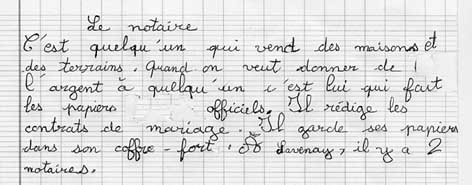 Le notaire
C'est quelqu'un qui vend des maisons et
des terrains. Quand on veut donner de
l'argent à quelqu'un c'est lui qui fait
les papiers officiels. Il rédige les
contrats de mariage. Il garde ses papiers
dans son coffre-fort. À Savenay, il y a 2
notaires.